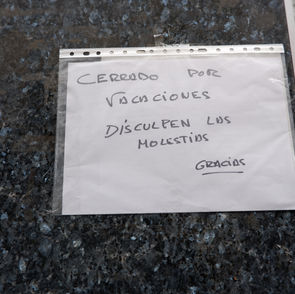 CERRADO POR
VACACIONES
DISCULPEN LAS
MOLESTIAS
GRACIAS